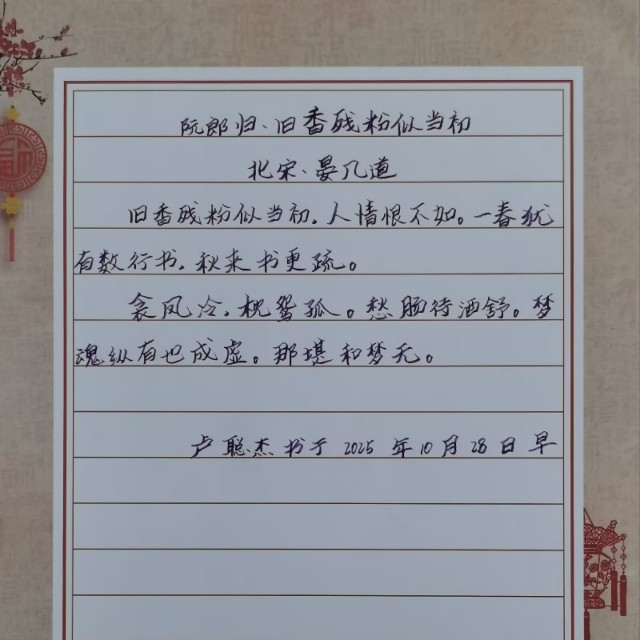 阮郎归·旧香残粉似当初
北宋·晏几道
旧香残粉似当初,人情恨不如。一春犹
有数行书,秋来书更疏。
衾凤冷,枕鸳孤。愁肠待酒舒。梦
魂纵有也成虚。那堪和梦无。
卢聪杰书于2025年10月28日早